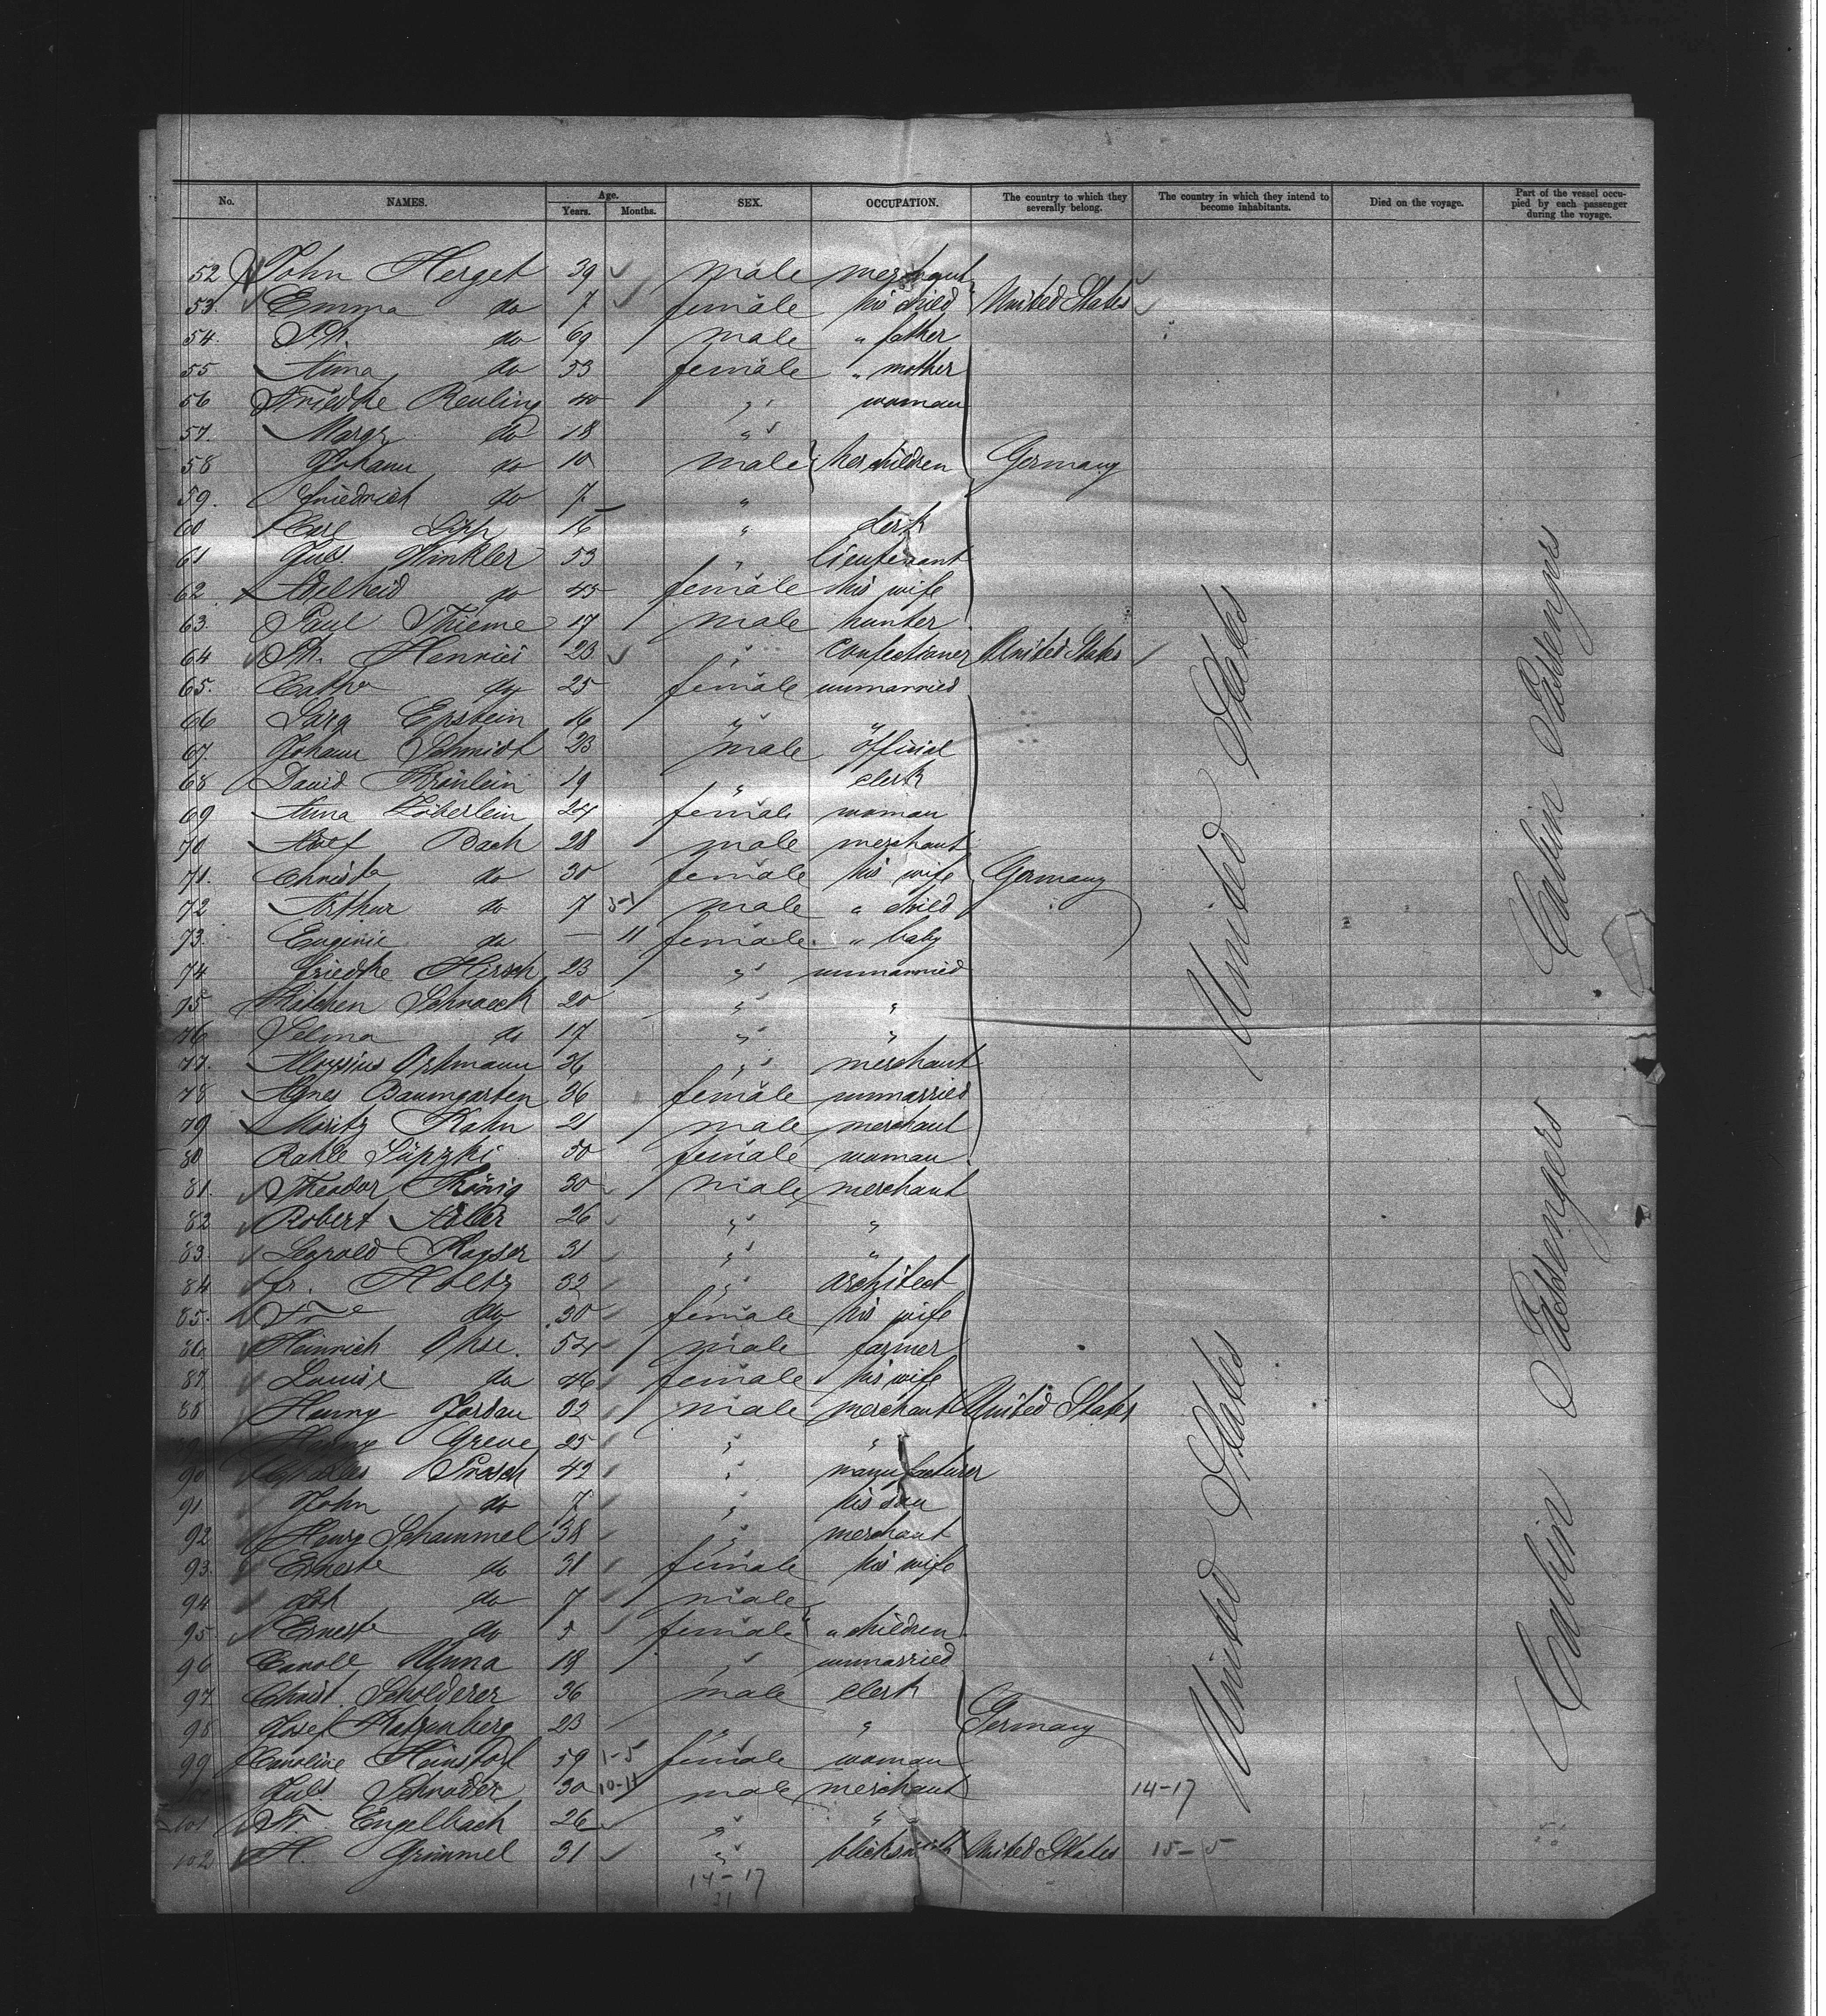 No. NAMES. Age. Years. Months. SEX. OCCUPATION. The country to which they severally belong. The country in which they intend to become inhabitants. Died on the voyage. Part of the vessel occupied by each passenger during the voyage.
52 John Herget 39 male merchant
53. Emma do 7 female his child United States
54. Ph. do 69 male " father
55 Anna do 53 female " mother
56 Friedke Reuling 40 " woman
57. Margr. do 18 "
58 Johann do 10 male her children Germany
59. Friedrich do 7 "
60 Carl Lipp 16 " clerk
61 Juls. Winkler 53 " lieutenant
62. Adelheid do 45 female his wife
63. Paul Thieme 17 male hunter
64 Ph. Henrici 23 " confectioner United States
65. Cathe do 25 female unmarried
66 Sara Epstein 16 " "
67. Johann Schmidt 23 male official
68 David Kränlein 19 " clerk
69 Anna Löberlein 24 female woman
70 Adolf Bach 28 male merchant
71. Christa do 30 female his wife Germany
72 Arthur do 7 male " child
73. Eugenie do — 11 female " baby
74 Friedke Hirsch 23 " unmarried
75 Kätchen Schnaeck 20 " "
76 Selma do 17 " "
77. Aloysius Ortmann 36 " merchant
78 Agnes Baumgarten 36 female unmarried
79 Moritz Kahn 21 male merchant
80 Rahle Süpzki 50 female woman
81. Theodor König 30 male merchant
82 Robert Adler 26 " "
83. Leopold Kayser 31 " "
84 Fr. Holtz 32 " architect
85. Fr do 30 female his wife
86 Heinrich Ohse. 54 male farmer
87 Louise do 46 female his wife
88 Henny Jordan 32 male merchant United States
Greve 25 " "
90 Charles Prosch 42 " manufacturer
91. John do 7 " his son
92 Henry Schammel 38 " merchant
93. Erneste do 31 female his wife
94 do 7 male
95 Erneste do female " children
96 Carole Unna 18 " unmarried
97. Christ. Scholderer 36 male clerk
98 Josef Katzenberg 23 " " Germany
99 Caroline Heinsdorf 59 1-5 female woman
Juls Schröder 30 10-11 male merchant 14-17
101 Fr. Engelbach 26 " "
102 H. Grimmel 31 " blacksmith United States 15-5
14-17
21
United States
United States
Cabin Passengers
Cabin Passengers